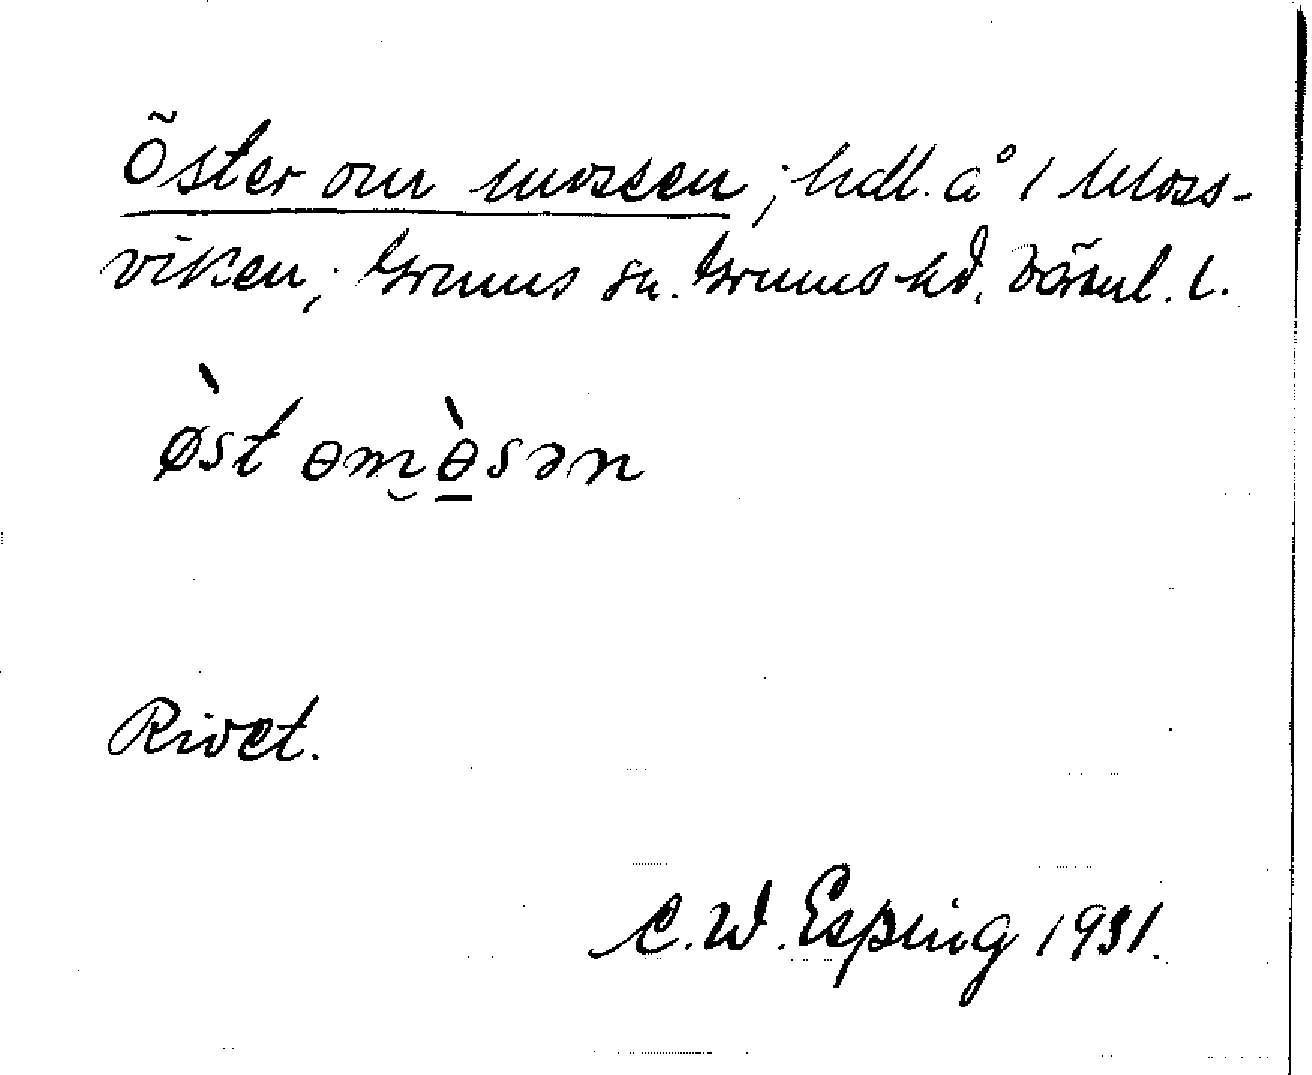 Öster om mossen; hdl. å 1 Moss-
viken; Grums sn. Grums hd, Värml. l.
ø̀st ɵmɵ̀sən
Rivet.
C.W. Esping 1931.